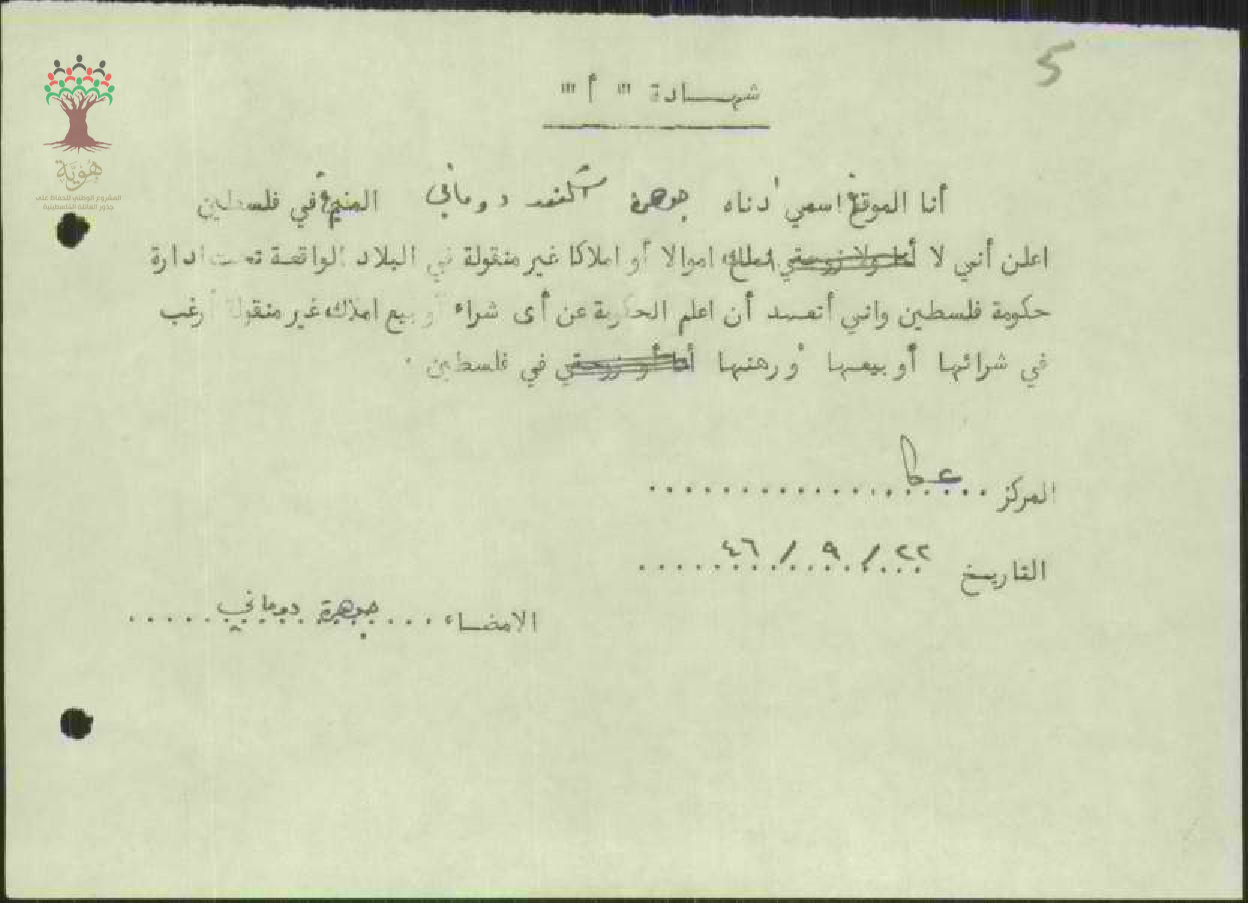 5
شهادة " أ "
أنا الموقع اسمي أدناه جوهرة اسكندر دوماني المقيم في فلسطين
اعلن أنني لا أنا ولا زوجتي املك اموالا أو املاكا غير منقولة في البلاد الواقعة تحت ادارة
حكومة فلسطين واني أتعهد أن اعلم الحكومة عن أى شراء أو بيع املاك غير منقولة أرغب
في شرائها أو بيعها أو رهنها أنا أو زوجتي في فلسطين .
المركز عكا
التاريخ ٢٢ / ٩ / ٤٦
الامضاء جوهرة دوماني
هُويّة
المشروع الوطني للحفاظ على
جذور العائلة الفلسطينية